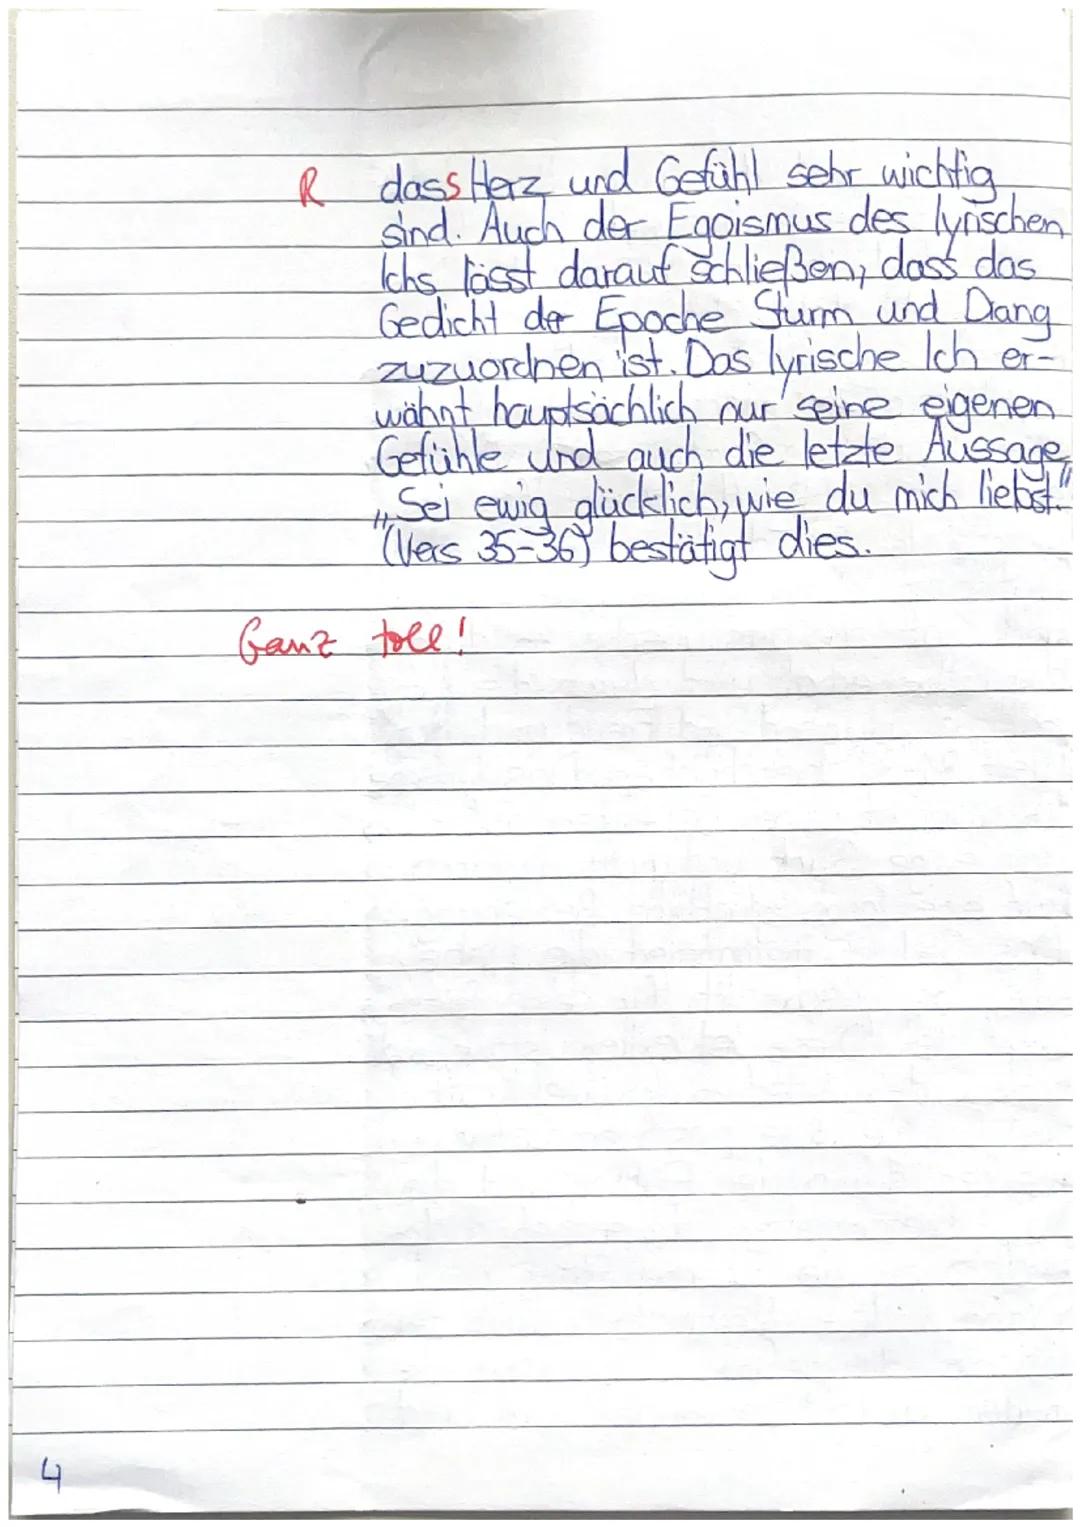 R dass Herz und Gefühl sehr wichtig
sind. Auch der Egoismus des lyrischen
Ichs lässt darauf schließen, dass das
Gedicht der Epoche Sturm und Drang
zuzuordnen ist. Das lyrische Ich er-
wähnt hauptsächlich nur seine eigenen
Gefühle und auch die letzte Aussage
„Sei ewig glücklich, wie du mich liebst."
(Vers 35-36) bestätigt dies.
Ganz toll!
4